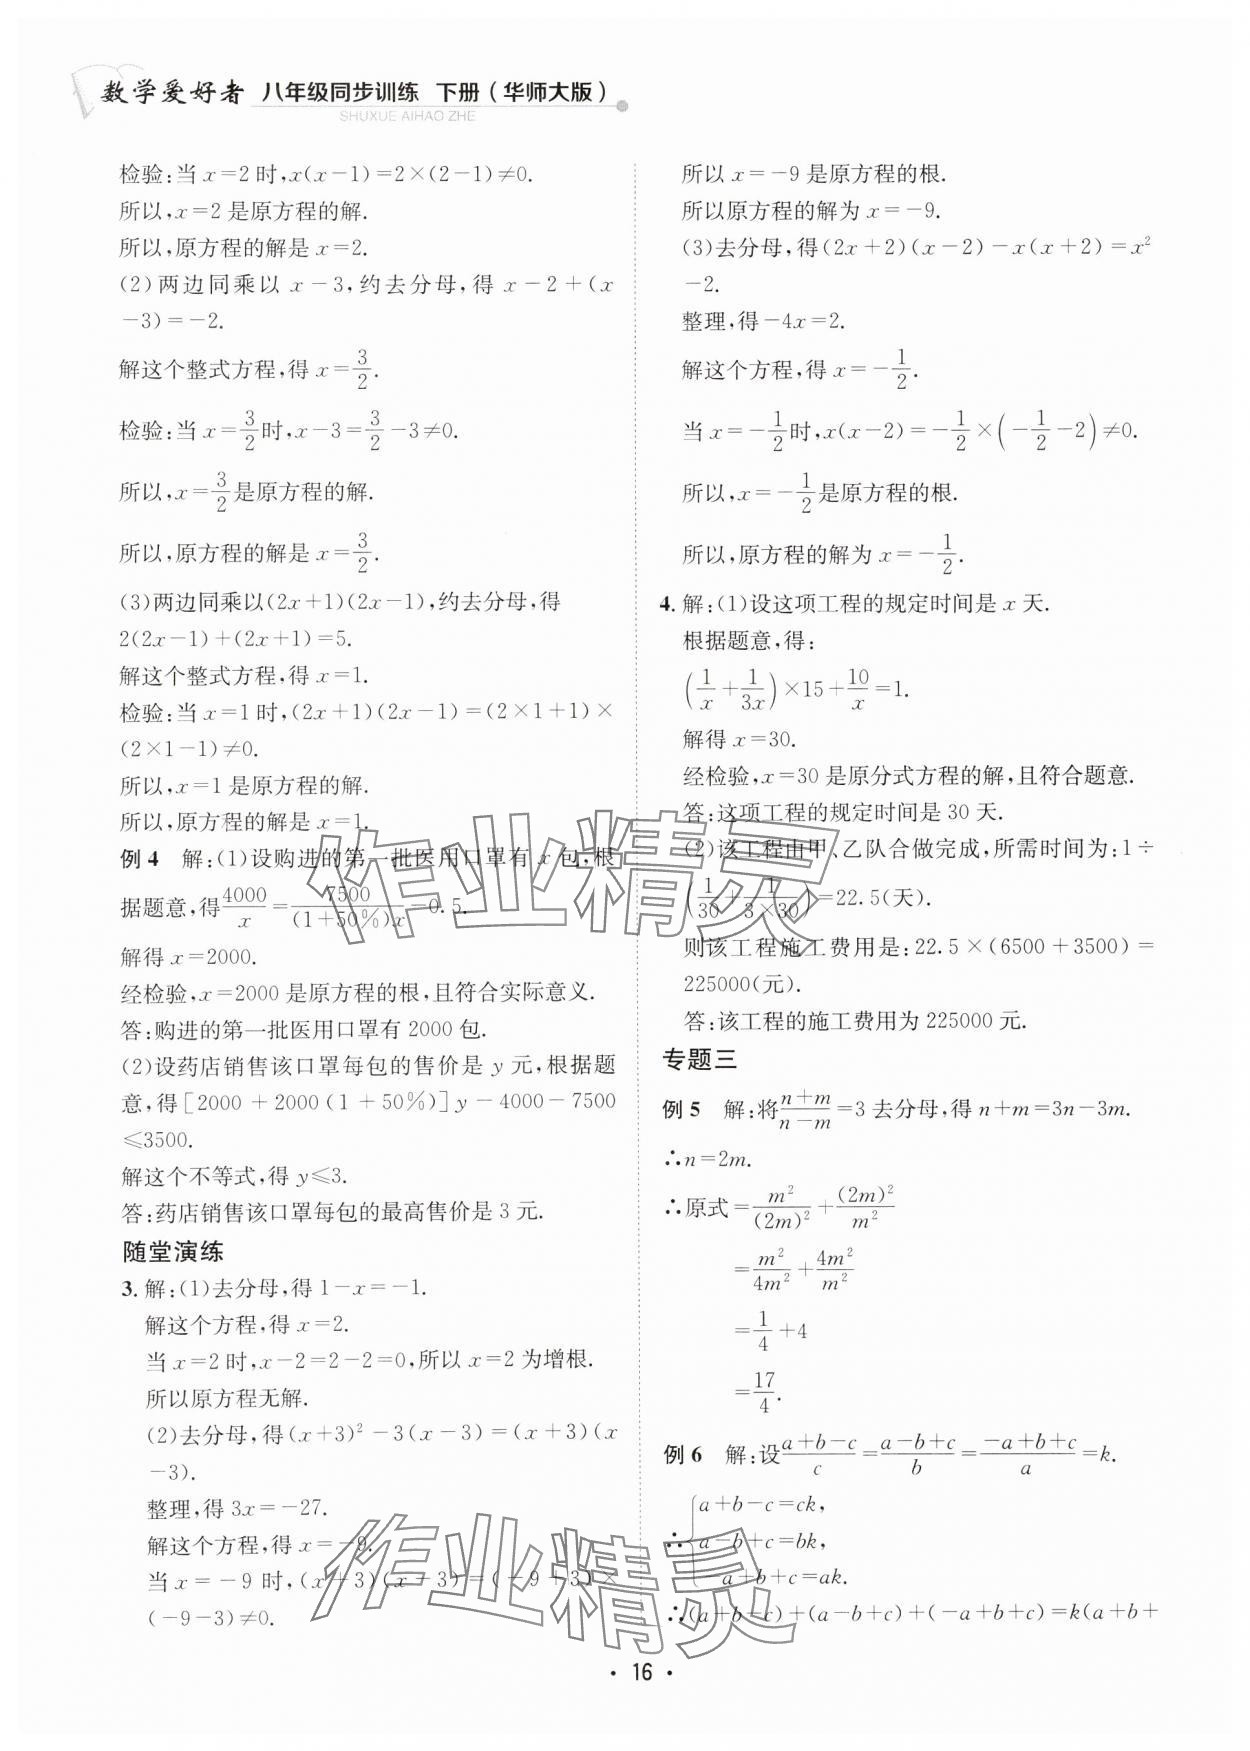 数学爱好者 八年级同步训练 下册(华师大版)
SHUXUE AIHAO ZHE
检验:当 x=2 时,x(x-1)=2×(2-1)≠0.
所以,x=2 是原方程的解.
所以,原方程的解是 x=2.
(2)两边同乘以 x-3,约去分母,得 x-2+(x
-3)=-2.
解这个整式方程,得 x=3/2.
检验:当 x=3/2时,x-3=3/2-3≠0.
所以,x=3/2是原方程的解.
所以,原方程的解是 x=3/2.
(3)两边同乘以(2x+1)(2x-1),约去分母,得
2(2x-1)+(2x+1)=5.
解这个整式方程,得 x=1.
检验:当 x=1 时,(2x+1)(2x-1)=(2×1+1)×
(2×1-1)≠0.
所以,x=1 是原方程的解.
所以,原方程的解是 x=1.
例 4 解:(1)设购进的第一批医用口罩有 x 包,根
据题意,得4000/x=7500/(1+50%)x-0.5.
解得 x=2000.
经检验,x=2000 是原方程的根,且符合实际意义.
答:购进的第一批医用口罩有 2000 包.
(2)设药店销售该口罩每包的售价是 y 元,根据题
意,得[2000+2000(1+50%)]y-4000-7500
≤3500.
解这个不等式,得 y≤3.
答:药店销售该口罩每包的最高售价是 3 元.
随堂演练
3. 解:(1)去分母,得 1-x=-1.
解这个方程,得 x=2.
当 x=2 时,x-2=2-2=0,所以 x=2 为增根.
所以原方程无解.
(2)去分母,得(x+3)²-3(x-3)=(x+3)(x
-3).
整理,得 3x=-27.
解这个方程,得 x=-9.
当 x=-9 时,(x+3)(x-3)=(-9+3)×
(-9-3)≠0.
所以 x=-9 是原方程的根.
所以原方程的解为 x=-9.
(3)去分母,得(2x+2)(x-2)-x(x+2)=x²
-2.
整理,得-4x=2.
解这个方程,得 x=-1/2.
当 x=-1/2时,x(x-2)=-1/2×(-1/2-2)≠0.
所以,x=-1/2是原方程的根.
所以,原方程的解为 x=-1/2.
4. 解:(1)设这项工程的规定时间是 x 天.
根据题意,得:
(1/x+1/3x)×15+10/x=1.
解得 x=30.
经检验,x=30 是原分式方程的解,且符合题意.
答:这项工程的规定时间是 30 天.
(2)该工程由甲、乙队合做完成,所需时间为:1÷
(1/30+1/3×30)=22.5(天).
则该工程施工费用是:22.5×(6500+3500)=
225000(元).
答:该工程的施工费用为 225000 元.
专题三
例 5 解:将n+m/n-m=3 去分母,得 n+m=3n-3m.
∴n=2m.
∴原式=m²/(2m)²+(2m)²/m²
=m²/4m²+4m²/m²
=1/4+4
=17/4.
例 6 解:设a+b-c/c=a-b+c/b=-a+b+c/a=k.
∴{a+b-c=ck,
a-b+c=bk,
-a+b+c=ak.
∴(a+b-c)+(a-b+c)+(-a+b+c)=k(a+b+
· 16 ·
作业精灵
作业精灵